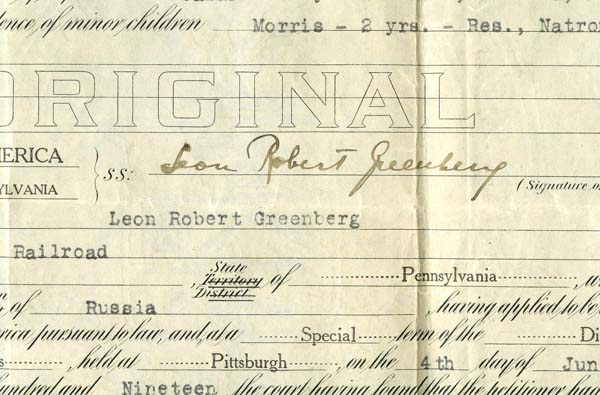 ence, of minor children Morris - 2 yrs. - Res., Natrona
ORIGINAL
MERICA
SYLVANIA
SS: Leon Robert Greenberg
(Signature of
Leon Robert Greenberg
Railroad
State
Territory of Pennsylvania
District
of Russia , having applied to be
rica pursuant to law, and, at a Special term of the Di
s , held at Pittsburgh , on the 4th day of Jun
hundred and Nineteen the court having found that the petitioner had